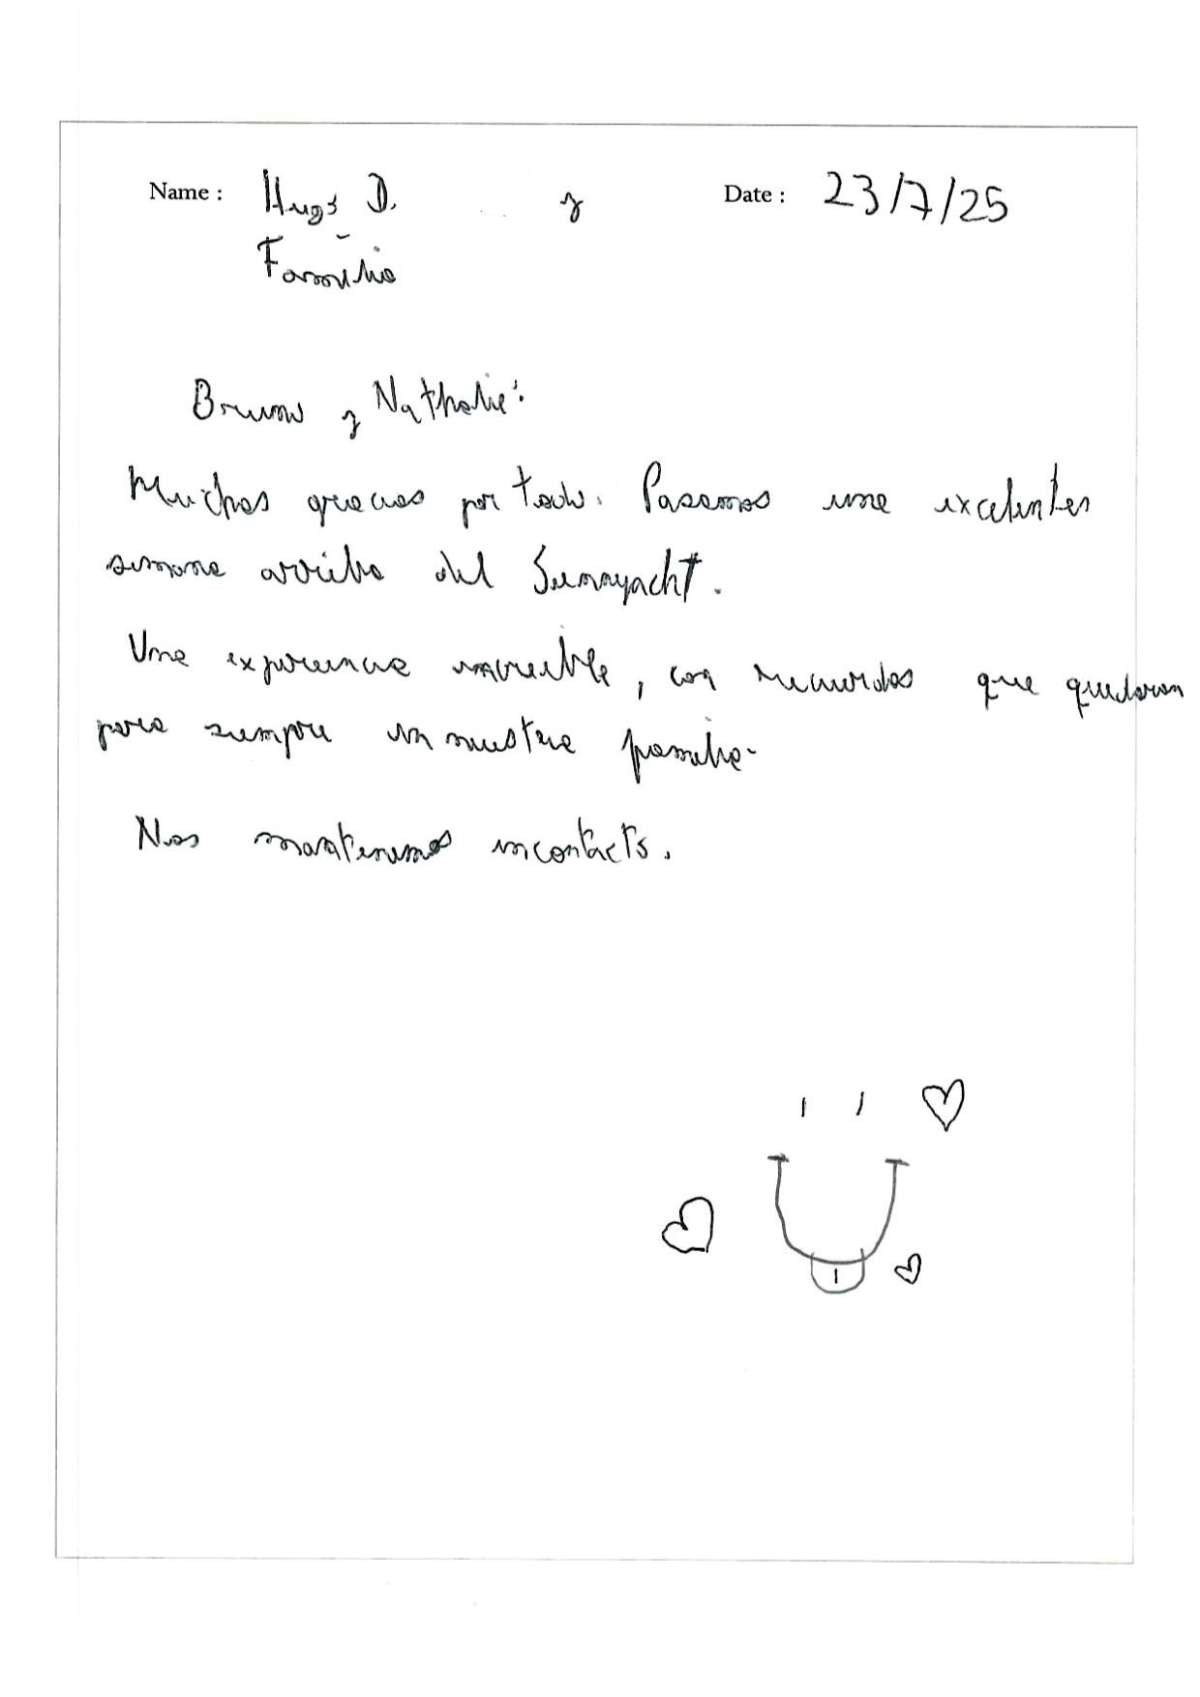 Name : Hugo D. y Date : 23/7/25
Familia
Bruno y Nathalie:
Muchas gracias por todo. Pasamos una excelentes
semana arriba del Sunnyacht.
Una experiencia increible, con recuerdos que quedaran
para siempre en nuestra familia.
Nos mantenemos en contacto.